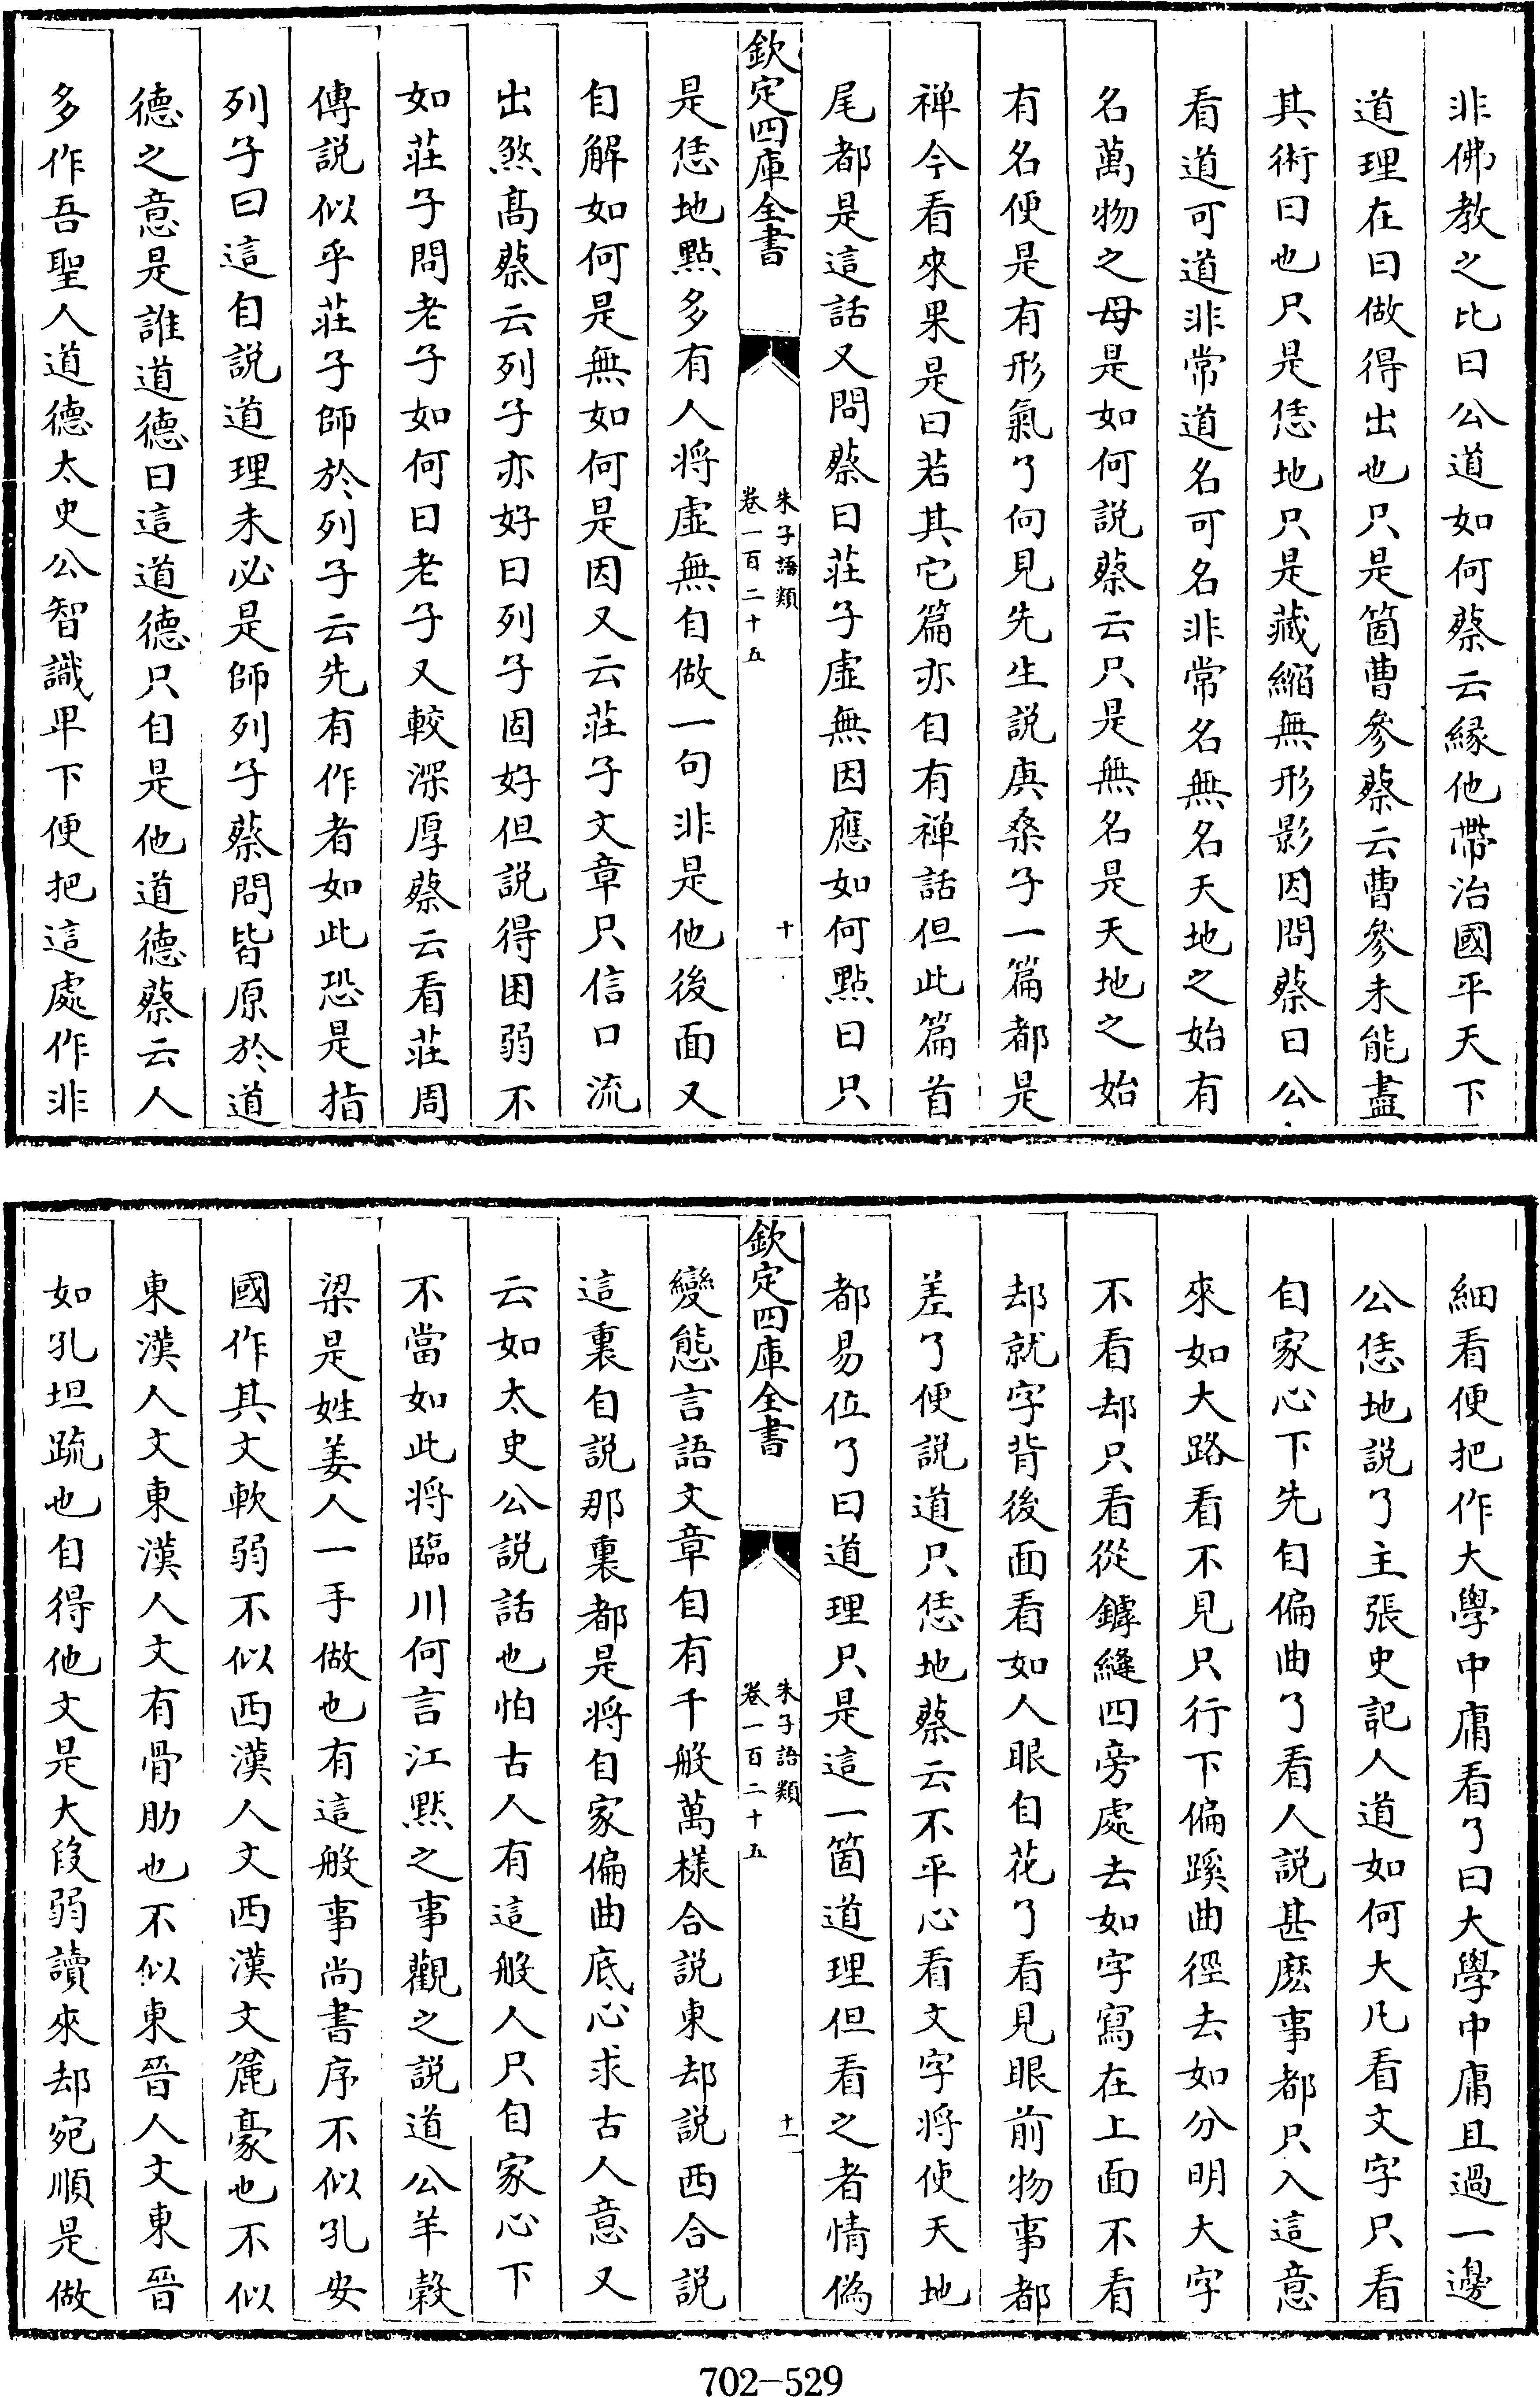 非佛教之比曰公道如何蔡云緣他帶治國平天下
道理在曰做得出也只是箇曹參蔡云曹參未能盡
其術曰也只是恁地只是藏縮無形影因問蔡曰公
看道可道非常道名可名非常名無名天地之始有
名萬物之母是如何説蔡云只是無名是天地之始
有名便是有形氣了向見先生説庚桑子一篇都是
禅今看來果是曰若其它篇亦自有禅話但此篇首
尾都是這話又問蔡曰莊子虛無因應如何點曰只
欽定四庫全書
朱子語類
卷一百二十五
十
是恁地點多有人將虛無自做一句非是他後面又
自解如何是無如何是因又云莊子文章只信口流
出煞髙蔡云列子亦好曰列子固好但説得困弱不
如莊子問老子如何曰老子又較深厚蔡云看莊周
傳説似乎莊子師於列子云先有作者如此恐是指
列子曰這自説道理未必是師列子蔡問皆原於道
德之意是誰道德曰這道德只自是他道德蔡云人
多作吾聖人道德太史公智識卑下便把這處作非
細看便把作大學中庸看了曰大學中庸且過一邊
公恁地説了主張史記人道如何大凡看文字只看
自家心下先自偏曲了看人説甚麽事都只入這意
來如大路看不見只行下偏蹊曲徑去如分明大字
不看却只看從罅縫四旁處去如字寫在上面不看
却就字背後面看如人眼自花了看見眼前物事都
差了便説道只恁地蔡云不平心看文字將使天地
都易位了曰道理只是這一箇道理但看之者情偽
欽定四庫全書
朱子語類
卷一百二十五
十一
變態言語文章自有千般萬樣合説東却説西合説
這裏自説那裏都是將自家偏曲底心求古人意又
云如太史公説話也怕古人有這般人只自家心下
不當如此將臨川何言江黙之事觀之説道公羊穀
梁是姓姜人一手做也有這般事尚書序不似孔安
國作其文軟弱不似西漢人文西漢文麄豪也不似
東漢人文東漢人文有骨肋也不似東晉人文東晉
如孔坦疏也自得他文是大段弱讀來却宛順是做
702-529